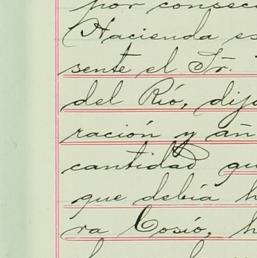 por consec
Hacienda es
sente el Sr.
del Río, dijo
ración y añ
cantidad qu
que debía h
ra Cosío, h